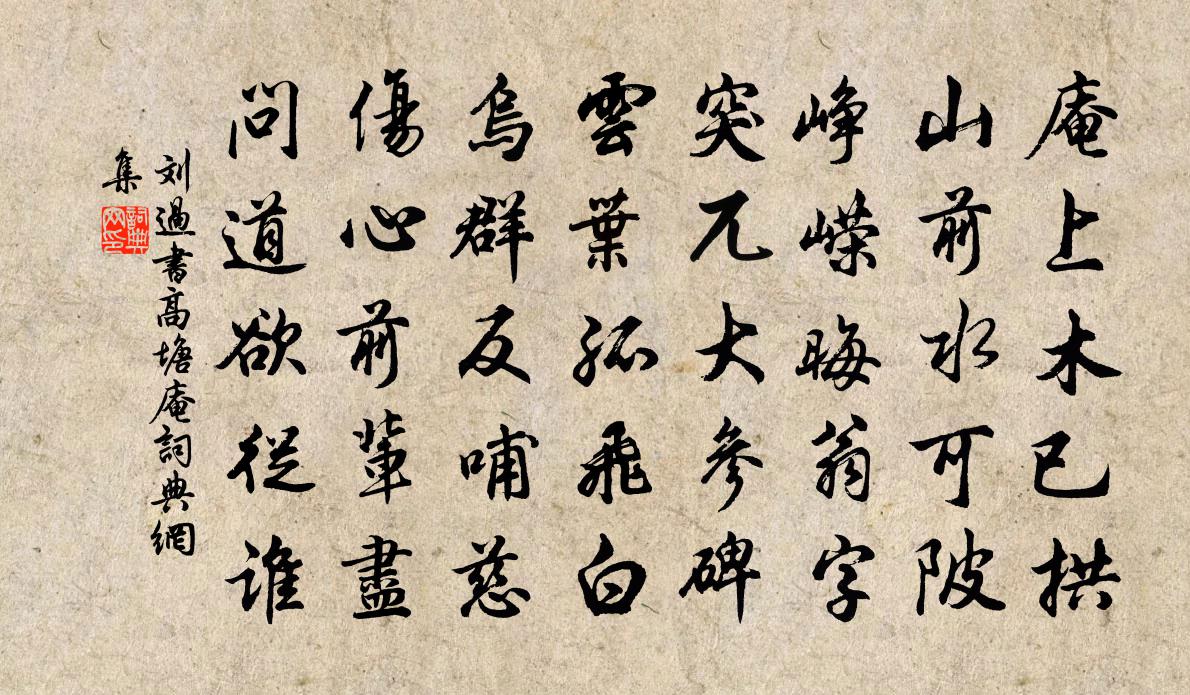 庵上木已拱
山前水可陂
峥嶸晦翁字
突兀大參碑
雲葉孤飛白
烏群反哺慈
傷心前輩盡
問道欲從誰
刘過書高塘庵詞典網
集
詞典
网印